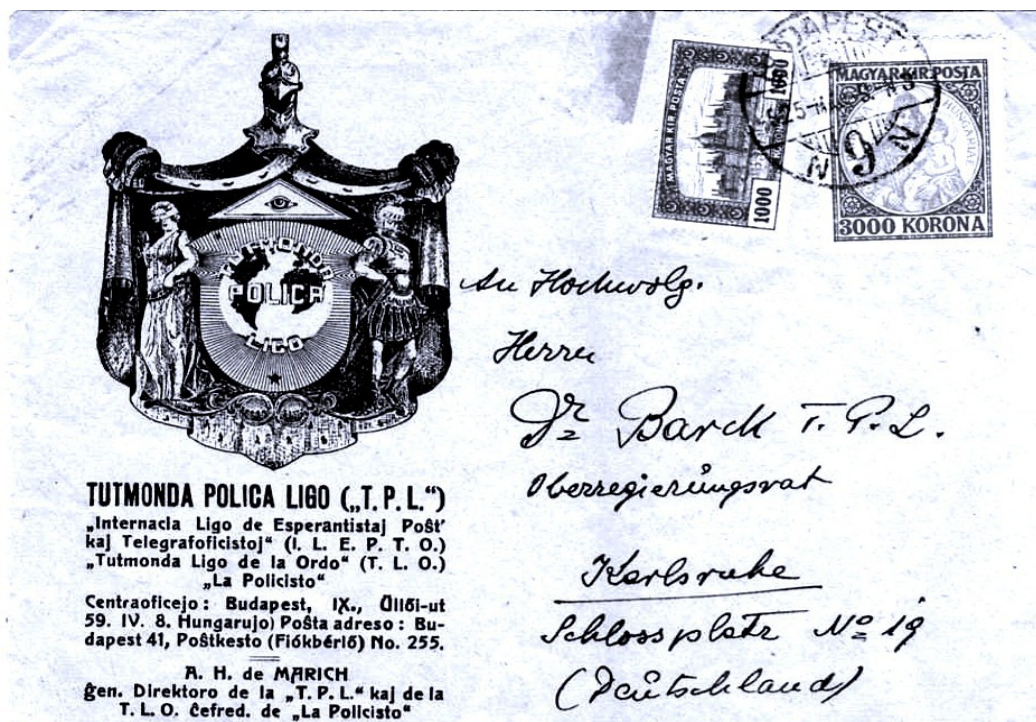 TUTMONDA
POLICA
LIGO
TUTMONDA POLICA LIGO („T. P. L.“)
„Internacia Ligo de Esperantistaj Pošt'
kaj Telegrafoficistoj" (I. L. E. P. T. O.)
„Tutmonda Ligo de la Ordo“ (T. L. O.)
„La Policisto“
Centraoficejo: Budapest, IX., Üllői-ut
59. IV. 8. Hungarujo) Pošta adreso: Bu-
dapest 41, Poštkesto (Fiókbérlő) No. 255.
A. H. de MARICH
ĝen. Direktoro de la „T. P. L.“ kaj de la
T. L. O. ĉefred. de „La Policisto“
MAGYAR KIR. POSTA
1000
1000
MAGYAR KIR. POSTA
3000 KORONA
BUDAPEST
9
N
N
An Hochwolg.
Herrn
Dr Barck T. P. L.
Oberregierungsrat
Karlsruhe
Schlossplatz No 19
(Deutschland)